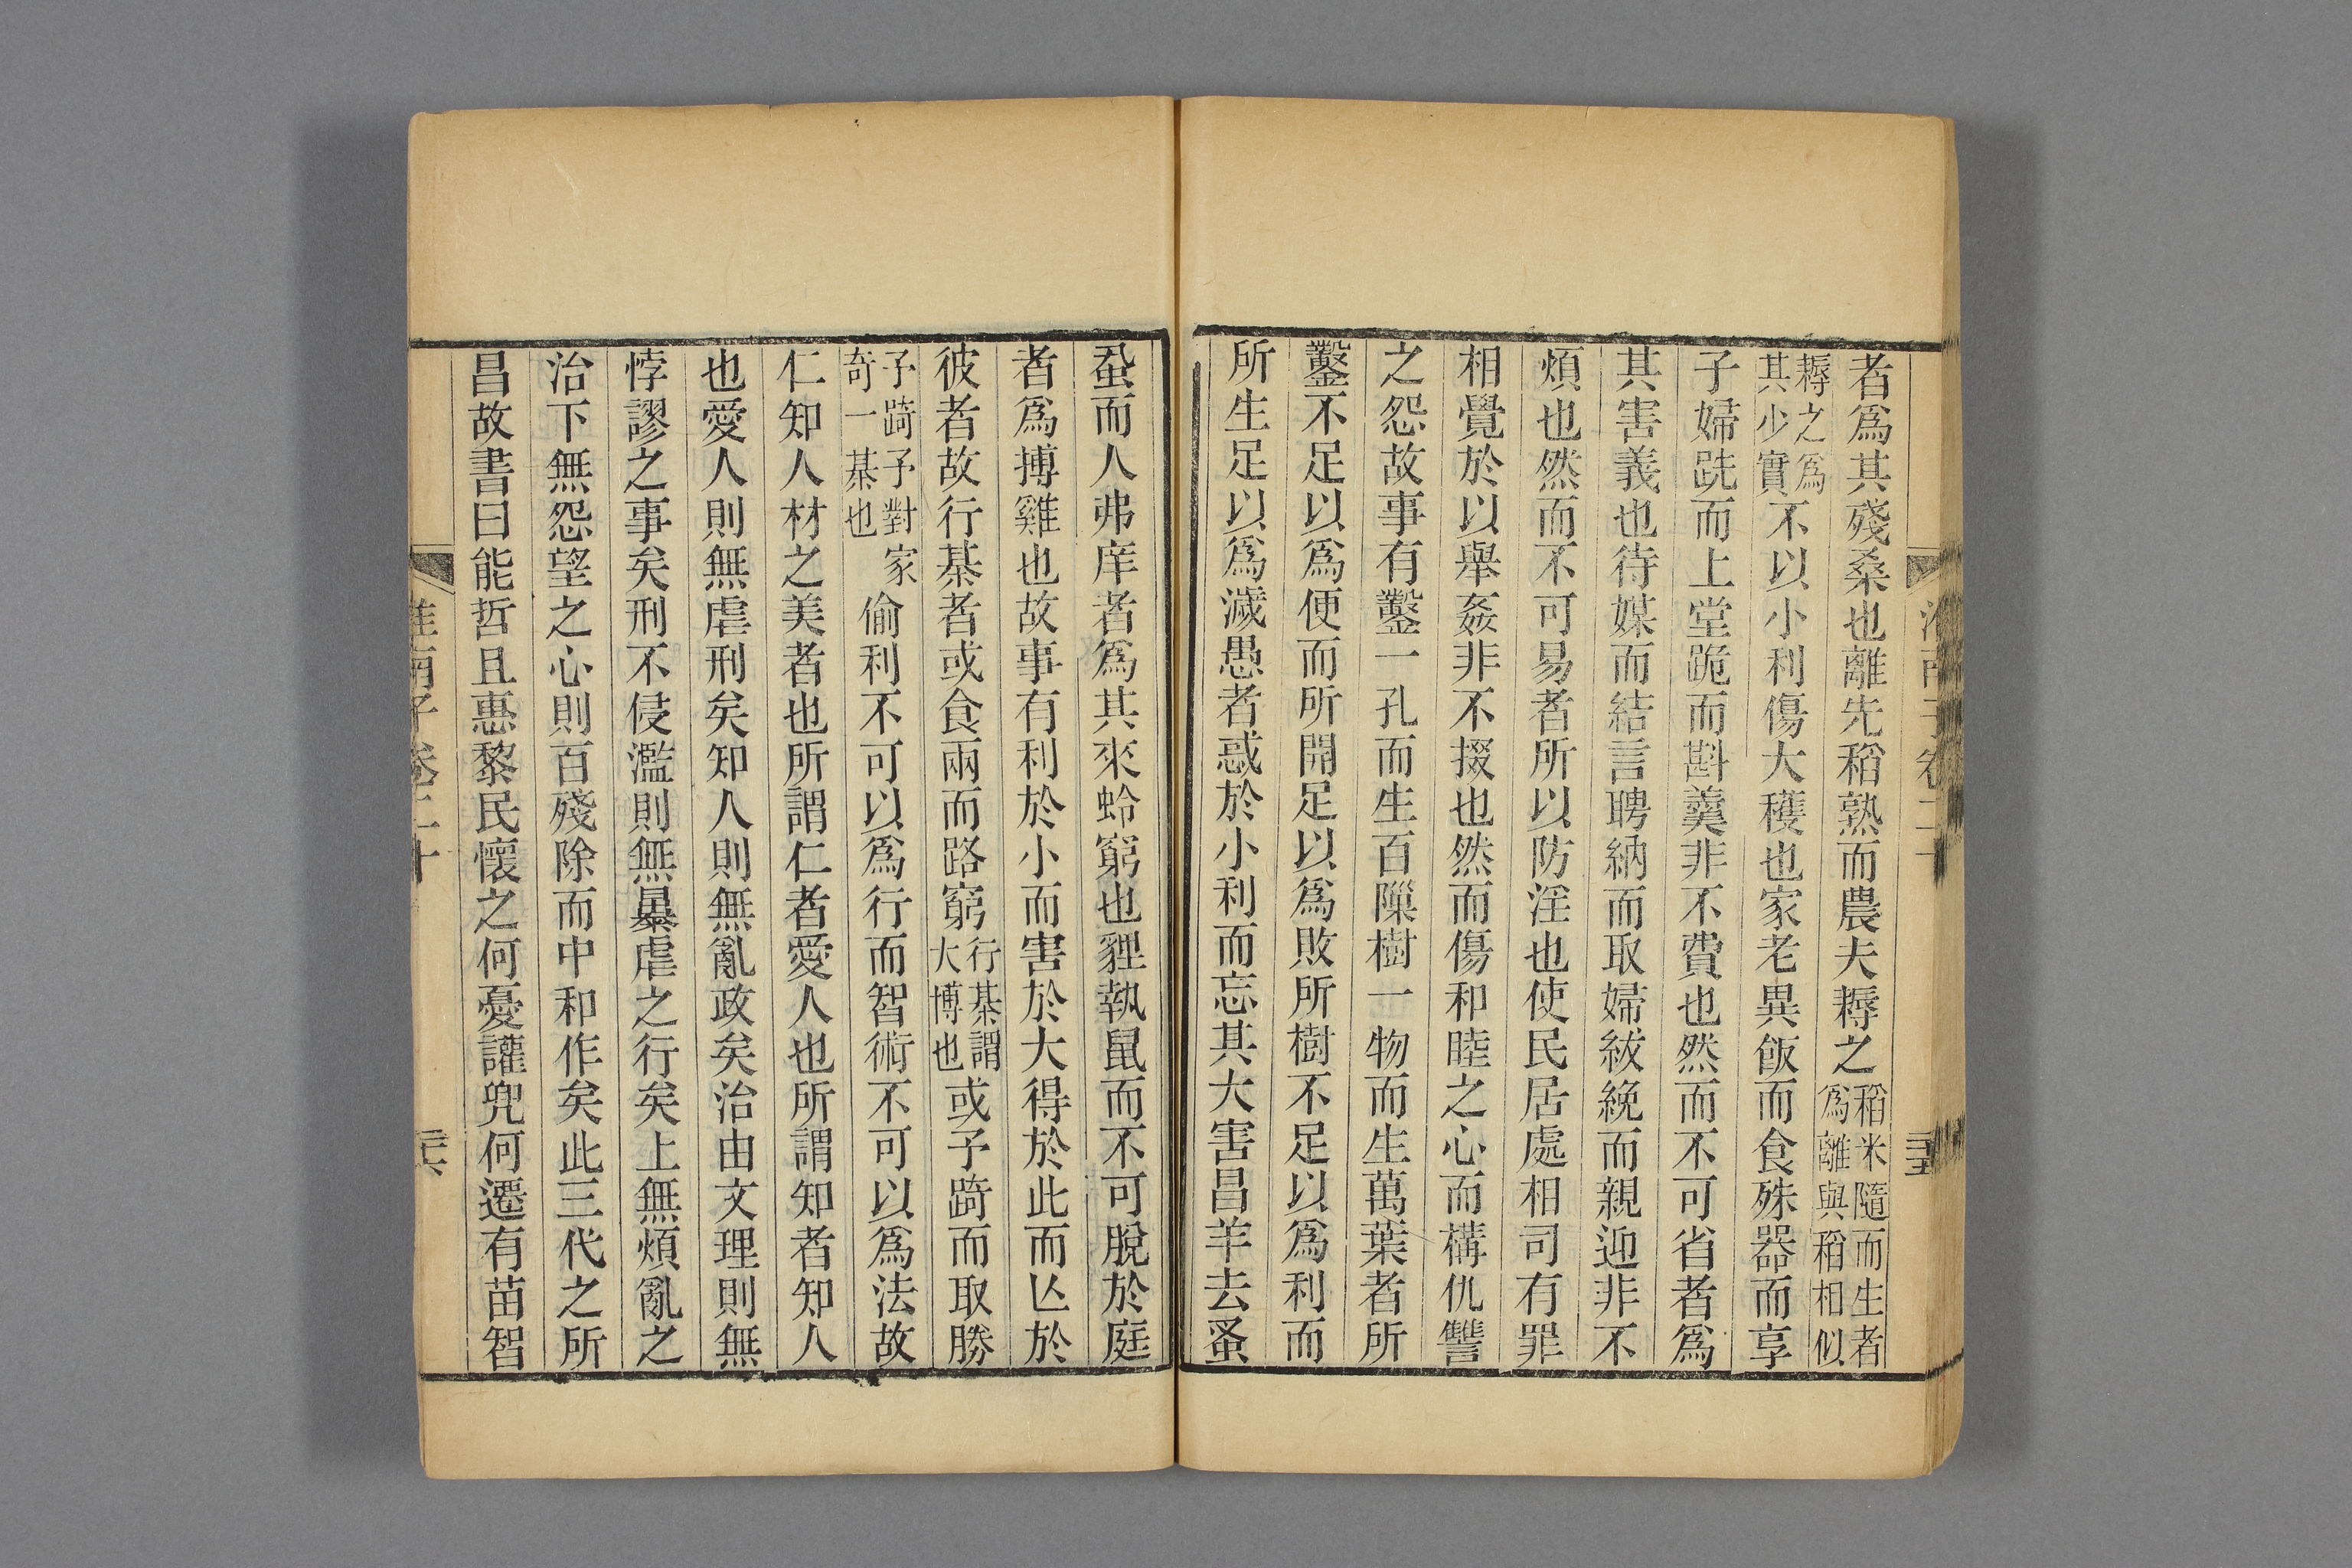 者爲其殘桑也離先稻熟而農夫耨之稻米隨而生者爲離與稻相似
耨之爲其少實不以小利傷大穫也家老異飯而食殊器而享
子婦跣而上堂跪而斟羹非不費也然而不可省者爲
其害義也待媒而結言聘納而取婦紱絻而親迎非不
煩也然而不可易者所以防淫也使民居處相司有罪
相覺於以舉姦非不掇也然而傷和睦之心而構仇讐
之怨故事有鑿一孔而生百隟樹一物而生萬葉者所
鑿不足以爲便而所開足以爲敗所樹不足以爲利而
所生足以爲濊愚者惑於小利而忘其大害昌羊去蚤
蝨而人弗庠者爲其來蛉窮也貍執鼠而不可脫於庭
者爲搏雞也故事有利於小而害於大得於此而亾於
彼者故行棊者或食兩而路窮行棊謂大博也或予踦而取勝
予踦予對家奇一棊也偷利不可以爲行而智術不可以爲法故
仁知人材之美者也所謂仁者愛人也所謂知者知人
也愛人則無虐刑矣知人則無亂政矣治由文理則無
悖謬之事矣刑不侵濫則無暴虐之行矣上無煩亂之
治下無怨望之心則百殘除而中和作矣此三代之所
昌故書曰能哲且惠黎民懷之何憂讙兜何遷有苗智
淮南子卷二十